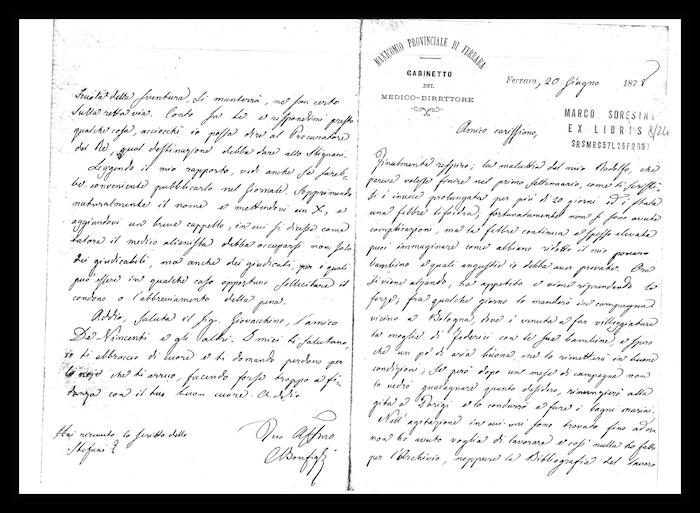 Scuola della sventura, si manterrà, ne son certo
sulla retta via. Conto su te e rispondimi presto
qualche cosa, acciocchè io possa dire al Procuratore
del Re, qual destinazione debba dare allo Stignani.
Leggendo il mio rapporto, vedi anche se sareb-
be conveniente pubblicarlo nel Giornale, sopprimendo
naturalmente il nome e mettendovi un X, e
aggiandovi un breve cappello, in cui si dicesse come
talora il medico alienista debba occuparsi non solo
dei giudicabili, ma anche dei giudicati, per i quali
può essere in qualche caso opportuno sollecitare il
condono o l'abbreviamento della pena.
Addio, saluta il Sig. Giovacchino, l'amico
De Vincenti e gli altri. I miei ti salutano,
io ti abbraccio di cuore e ti domando perdono per
le noje che ti arreco, facendo forse troppo a fi-
danza con il tuo buon cuore. Addio
Tuo Affmo
CBonfigli
Hai ricevuto lo scritto dello
Stefani?
MANICOMIO PROVINCIALE DI FERRARA
GABINETTO
DEL
MEDICO-DIRETTORE
Ferrara, 20 Giugno 1878
MARCO SORESINA
EX LIBRIS 8/24
SRSMRC57L25F205T
Amico carissimo,
Finalmente respiro; la malattia del mio Rodolfo, che
pareva volesse finire nel primo settennario, come ti scrissi,
si è invece prolungata per più di 20 giorni. È stata
una febbre tifoidea, fortunatamente non si sono avute
complicazioni, ma la febbre continua e spesso elevata
puoi immaginare come abbiano ridotto il mio povero
bambino e quali angustie io debba aver provate. Ora
si viene alzando, ha appetito e viene riprendendo le
forze; fra qualche giorno lo manderò in campagna
vicino a Bologna, dove è venuta a far villeggiatura
la moglie di Federici con le sue bambine, e spero
che un pò di aria buona, me lo rimetterà in buone
condizioni; se però dopo un mese di campagna non
lo vedrò guadagnare quanto desidero, rinunzierò alla
gita a Parigi e lo condurrò a fare i bagni marini.
Nell'agitazione in cui mi sono trovato fino adora
non ho avuto voglia di lavorare e così nulla ho fatto
per l'Archivio, neppure la Bibliografia del lavoro